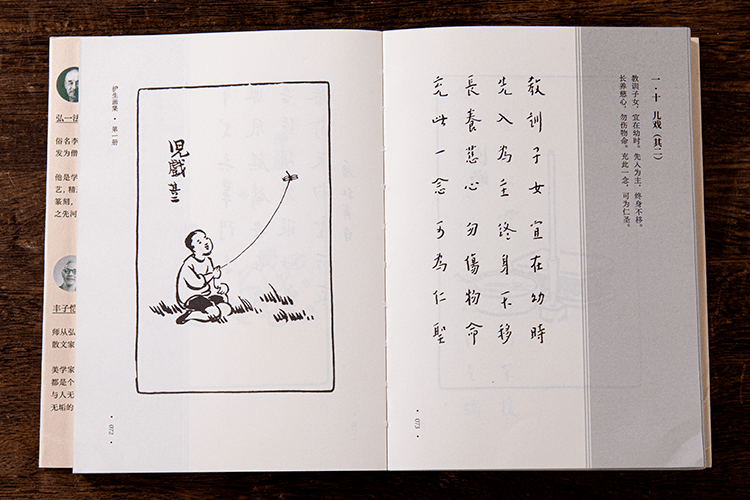 弘一法
俗名李
发为僧
他是学
艺，精
篆刻，
之先河
丰子恺
师从弘
散文家
美学家
都是个
与人无
无垢的
护生画集 · 第一册
兒戲 其二
· 072 ·
一·十 儿戏（其二）
教训子女，宜在幼时。先入为主，终身不移。
长养慈心，勿伤物命。充此一念，可为仁圣。
教訓子女宜在幼時
先入為主終身不移
長養慈心勿傷物命
充此一念可為仁聖
· 073 ·